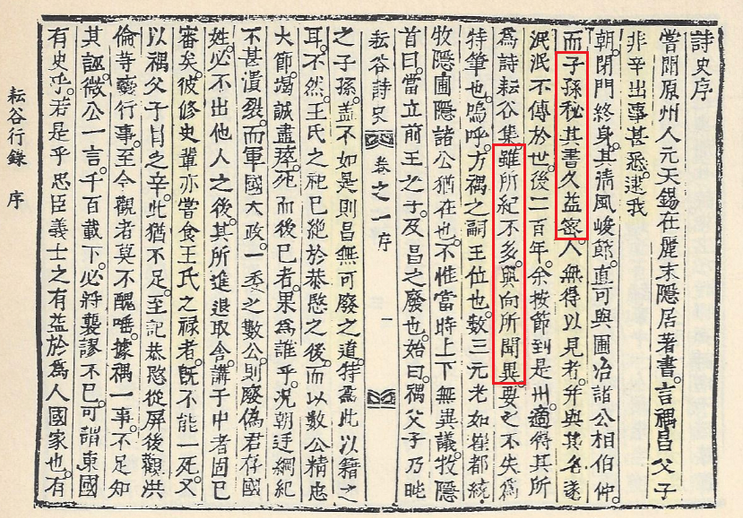 詩史序
嘗聞原州人元天錫在麗末隱居著書言禑昌父子
非辛出事甚悉逮我
朝閉門終身其清風峻節直可與圃冶諸公相伯仲
而子孫秘其書久益密人無得以見者幷與其名遂
泯泯不傳於世後二百年余按節到是州適得其所
爲詩耘谷集雖所紀不多與向所聞異要之不失爲
特筆也嗚呼方禑之嗣王位也數三元老如崔都統
牧隱圃隱諸公猶在也不惟當時上下無異議牧隱
首曰當立前王之子及昌之廢也始曰禑父子乃旽
耘谷詩史 卷之一 序 一
之子孫盖不如是則昌無可廢之道特藁此以籍之
耳不然王氏之祀已絶於恭愍之後而以數公精忠
大節竭誠盡瘁死而後已者果爲誰乎況朝廷綱紀
不甚潰裂而軍國大政一委之數公則廢僞君存國
姓必不出他人之後其所進退取舍講于中者固已
審矣彼修史輩亦嘗食王氏之祿者旣不能一死又
以禑父子目之辛此猶不足至記恭愍從屏後觀洪
倫等褻行事至今觀者莫不醜唾據禑一事不足知
其誣微公一言千百載下必將襲謬不已可謂東國
有史乎若是乎忠臣義士之有益於爲人國家也有
耘谷行錄 序